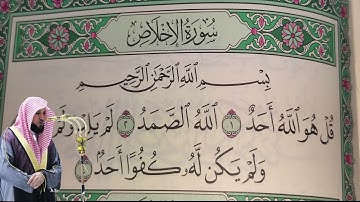 سُورَةُ الْإِخْلَاصِ
بِسْمِ اللَّهِ الرَّحْمَٰنِ الرَّحِيمِ
قُلْ هُوَ اللَّهُ أَحَدٌ ١ اللَّهُ الصَّمَدُ ٢ لَمْ يَلِدْ وَلَمْ
وَلَمْ يَكُن لَّهُ كُفُوًا أَحَدٌ ٤